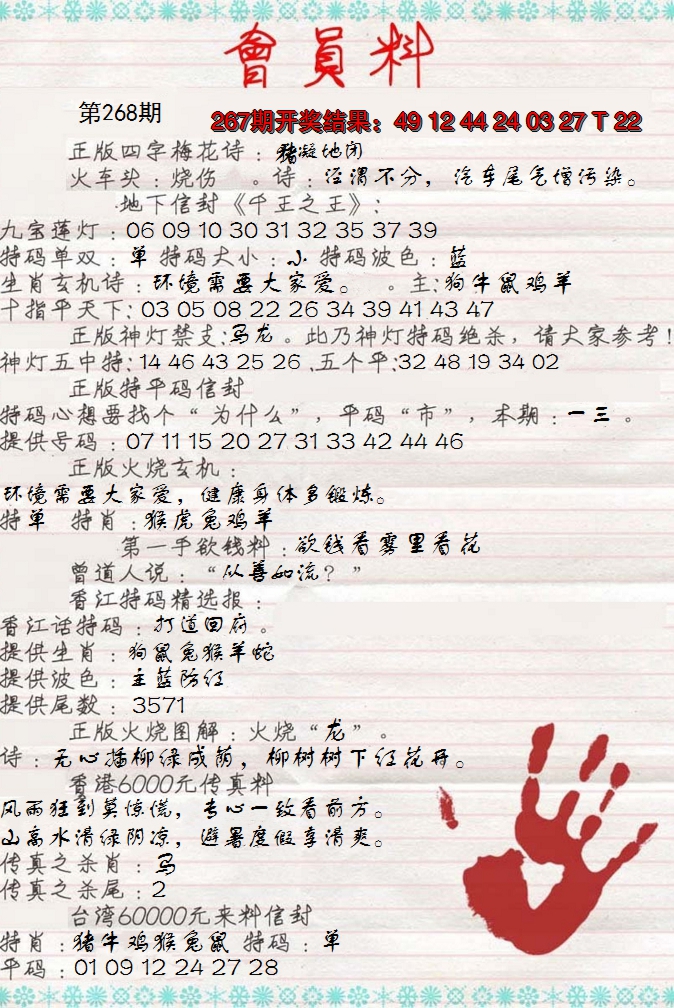 會員料
第268期
267期开奖结果：49 12 44 24 03 27 T 22
正版四字梅花诗：猪凝地闭
火车头：烧伤 。诗：泾渭不分，汽车尾气增污染。
地下信封《千王之王》：
九宝莲灯：06 09 10 30 31 32 35 37 39
特码单双：单 特码大小：小 特码波色：蓝
生肖玄机诗：环境需要大家爱。 。主：狗牛鼠鸡羊
十指平天下：03 05 08 22 26 34 39 41 43 47
正版神灯禁支：马龙。此乃神灯特码绝杀，请大家参考！
神灯五中特：14 46 43 25 26 .五个平：32 48 19 34 02
正版特平码信封
特码心想要找个“为什么”，平码“市”，本期：一三。
提供号码：07 11 15 20 27 31 33 42 44 46
正版火烧玄机：
环境需要大家爱，健康身体多锻炼。
特单 特肖：猴虎兔鸡羊
第一手欲钱料：欲钱看雾里看花
曾道人说：“从善如流？”
香江特码精选报：
香江话特码：打道回府。
提供生肖：狗鼠兔猴羊蛇
提供波色：主蓝防红
提供尾数：3571
正版火烧图解：火烧“龙”。
诗：无心插柳绿成荫，柳树树下红花开。
香港6000元传真料
风雨狂到莫惊慌，专心一致看前方。
山高水清绿阴凉，避暑度假享清爽。
传真之杀肖：马
传真之杀尾：2
台湾60000元来料信封
特肖：猪牛鸡猴兔鼠 特码：单
平码：01 09 12 24 27 28